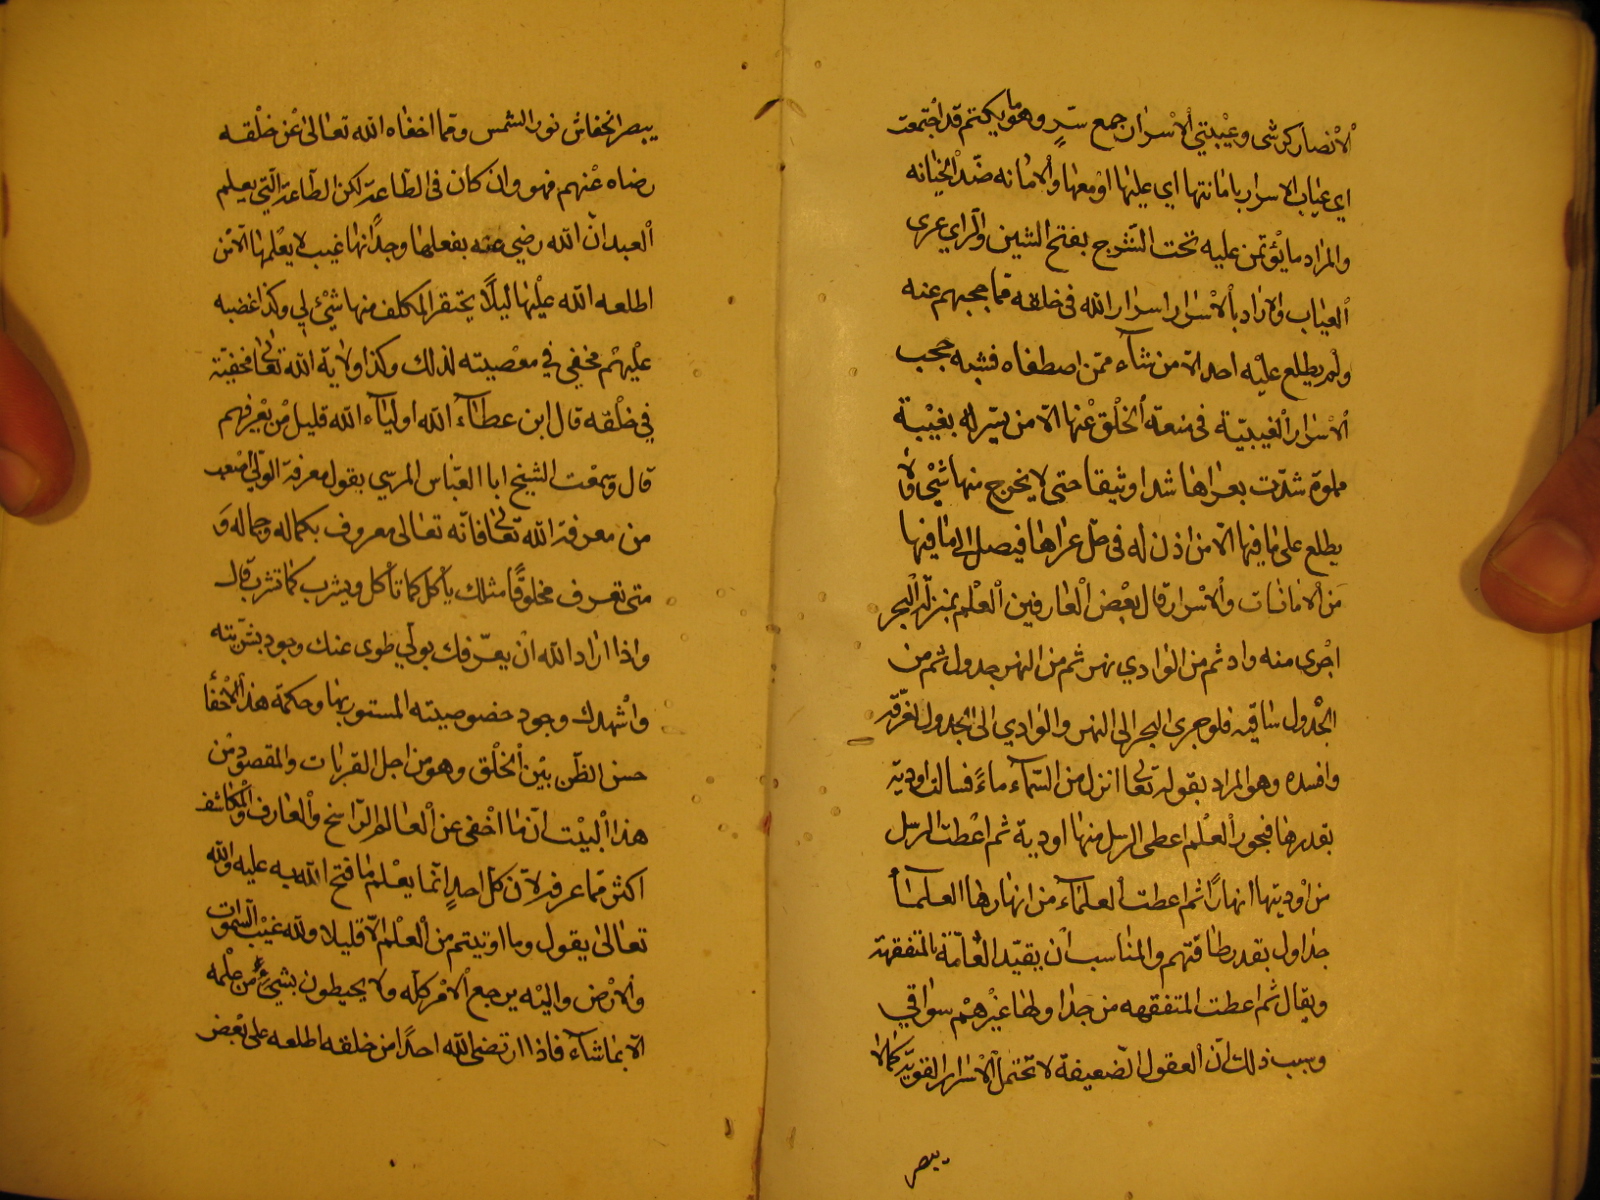 الانصار كرشى وعيبتي الاسرار جمع سرّ وهو ما يكتم قد اجتمعت
اي عياب الاسرار بامانتها اي عليها او معها والامانه ضدّ الخيانه
والمراد ما يؤتمن عليه تحت الشرج بفتح الشين والراي عرى
العياب والاراد بالاسرار اسرار الله في خلقه مما حجبهم عنه
ولم يطلع عليه احد الّا من شآء ممّن اصطفاه فشبه حجب
الاسرار الغيبيّة في منعة الخلق عنها الّا من يسّر له بغيبة
مملوة شدّت بعراها شدا وثيقا حتى لا يخرج منها شئ ولا
يطلع على ما فيها الّا من اذن له في حل عراها فيصل الى ما فيها
من الامانات والاسرار قال بعض العارفين العلم بمنزلة البحر
اجرى منه واد ثم من الوادي نهر ثم من النهر جدول ثم من
الجدول ساقيه فلو جرى البحر الى النهر والوادي الى الجدول لغرّقه
وافسده وهو المراد بقوله تعالى انزل من السمآء ماءً فسالت اودية
بقدرها فبحور العلم اعطى الرسل منها اودية ثم اعطت الرسل
من اوديتها انهارًا ثم اعطت العلمآء من انهارها العلمآء
جداول بقدر طاقتهم والمناسب ان يقيّد العامّة بالمتفقهة
ويقال ثم اعطت المتفقهه من جداولها غيرهم سواقي
وسبب ذلك انّ العقول الضعيفة لا تحتمل الاسرار القويّة كما لا
يبصر
يبصر الخفاش نور الشمس ومما اخفاه الله تعالى عن خلقه
رضاه عنهم فهو وان كان في الطّاعة لكن الطّاعة الّتي يعلم
العبد انّ الله رضي عنه بفعلها وجدانها غيب لا يعلمها الّا من
اطلعه الله عليها ليلّا يحتقر المكلف منها شئ لي وكذا غضبه
عليهم مخفي في معصيته لذلك وكذا ولاية الله تعالى مخفيّة
في خلقه قال ابن عطآء الله اوليآء الله قليل من يعرفهم
قال وسمعت الشيخ ابا العبّاس المرسي يقول معرفة الولي اصعب
من معرفة الله تعالى فانّه تعالى معروف بكماله وجماله وَ
متى تعرف مخلوقًا مثلك يأكل كما تأكل ويشرب كما تشرب قال
واذا اراد الله ان يعرّفك بولي طوى عنك وجود بشريّته
واشهدك وجود خصوصيته المستور بها وحكمة هذا الاخفأ
حسن الظّن بين الخلق وهو من اجل القربات والمقصود من
هذا البيت انّ ما اخفى عن العالم الرّاسخ والعارف والمكاشف
اكثر ممّا عرفه لانّ كلّ احدٍ انّما يعلم ما فتح الله به عليه والله
تعالى يقول وما اوتيتم من العلم الّا قليلا ولله غيب السّموات
والارض واليه يرجع الامر كلّه ولا يحيطون بشئ من علمه
الّا بما شآء فاذا ارتضى الله احدًا من خلقه اطلعه على بعض